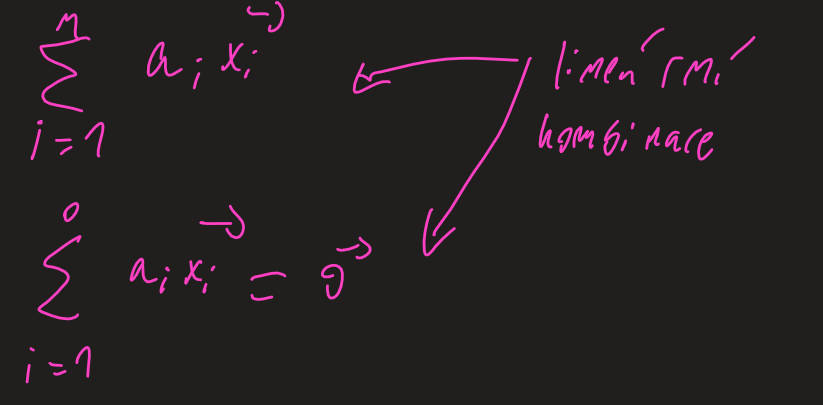 \sum_{i=1}^{n} a_i \vec{x_i}
lineární
kombinace
\sum_{i=1}^{0} a_i \vec{x_i} = \vec{0}